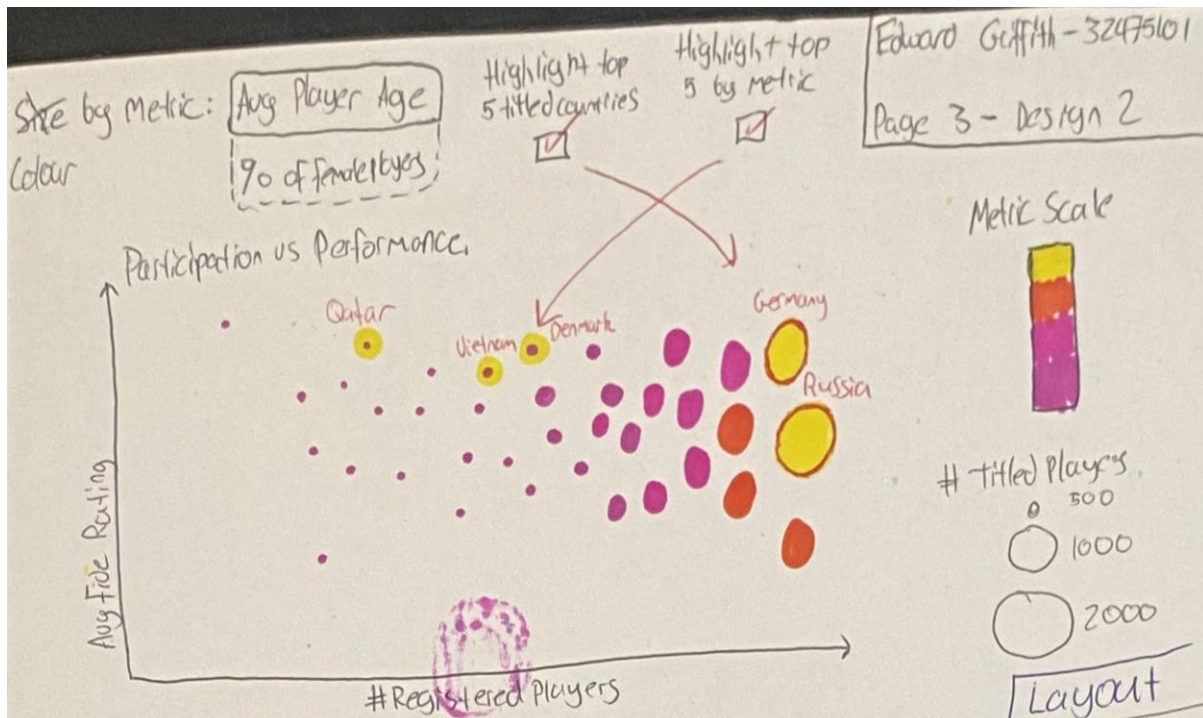 Size by Metric:
Colour
Avg Player Age
% of female players
Highlight top
5 titled countries
Highlight top
5 by metric
Edward Griffith - 32475101
Page 3 - Design 2
Participation vs Performance.
Metric Scale
Qatar
Vietnam
Denmark
Germany
Russia
Avg Fide Rating
# Registered Players
# Titled Players
500
1000
2000
Layout